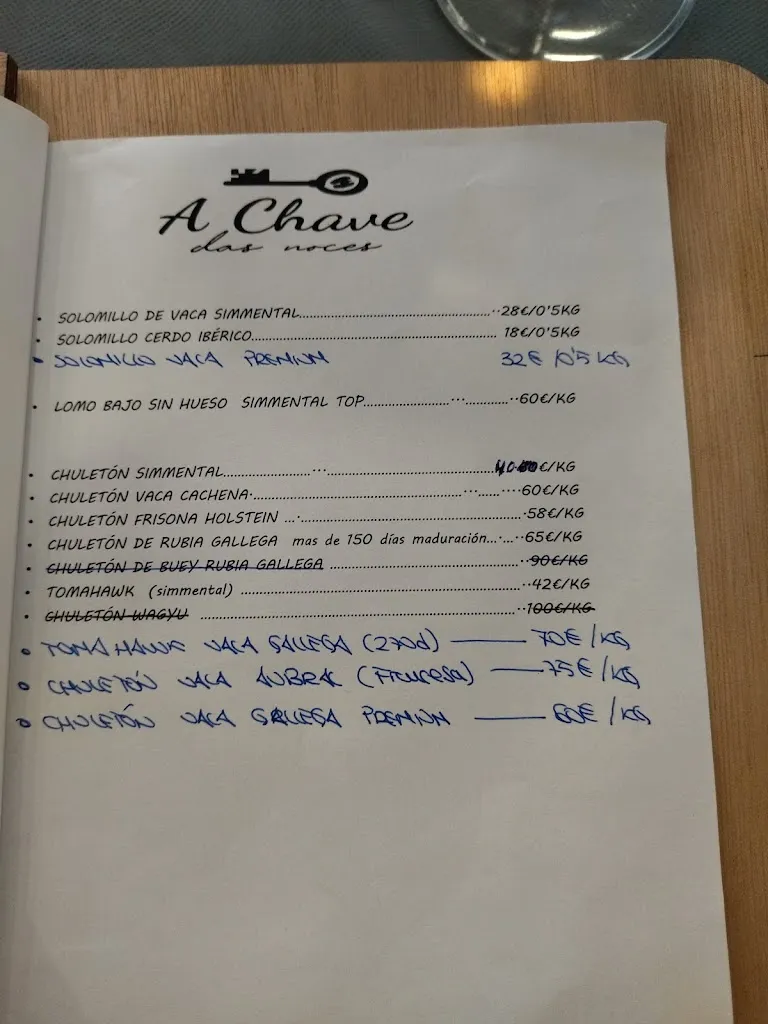 A Chave
das noces
• SOLOMILLO DE VACA SIMMENTAL.......28€/0'5KG
• SOLOMILLO CERDO IBÉRICO....... 18€/0'5KG
• SOLOMILLO VACA PREMIUM 32€/0'5 KG
• LOMO BAJO SIN HUESO SIMMENTAL TOP.......60€/KG
• CHULETÓN SIMMENTAL.......40€/KG
• CHULETÓN VACA CACHENA.......60€/KG
• CHULETÓN FRISONA HOLSTEIN .......58€/KG
• CHULETÓN DE RUBIA GALLEGA mas de 150 días maduración.......65€/KG
• CHULETÓN DE BUEY RUBIA GALLEGA .......90€/KG
• TOMAHAWK (simmental) .......42€/KG
• CHULETÓN WAGYU .......100€/KG
• TOMAHAWK VACA GALLEGA (270d) —— 70€/KG
• CHULETÓN VACA AUBRAC (Francesa) —— 75€/KG
• CHULETÓN VACA GALLEGA PREMIUM —— 60€/KG